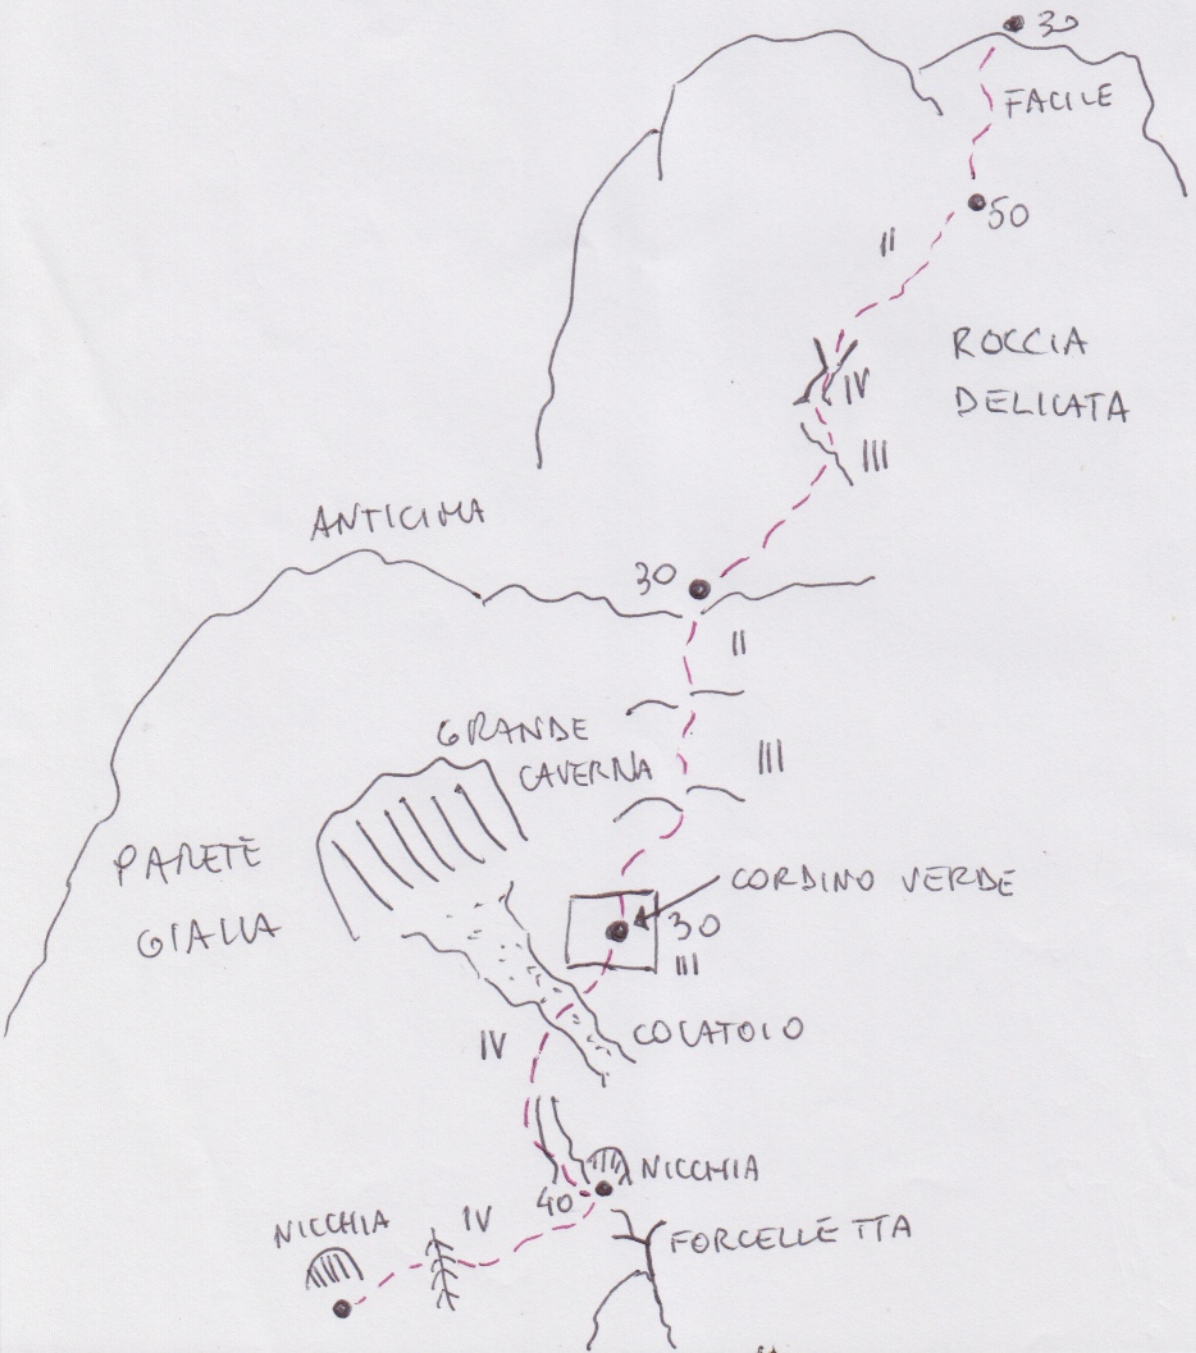 30
FACILE
50
II
ROCCIA
DELICATA
IV
III
ANTICIMA
30
II
GRANDE
CAVERNA
III
PARETE
GIALLA
CORDINO VERDE
30
III
IV
COLATOIO
NICCHIA
40
NICCHIA
IV
FORCELLETTA